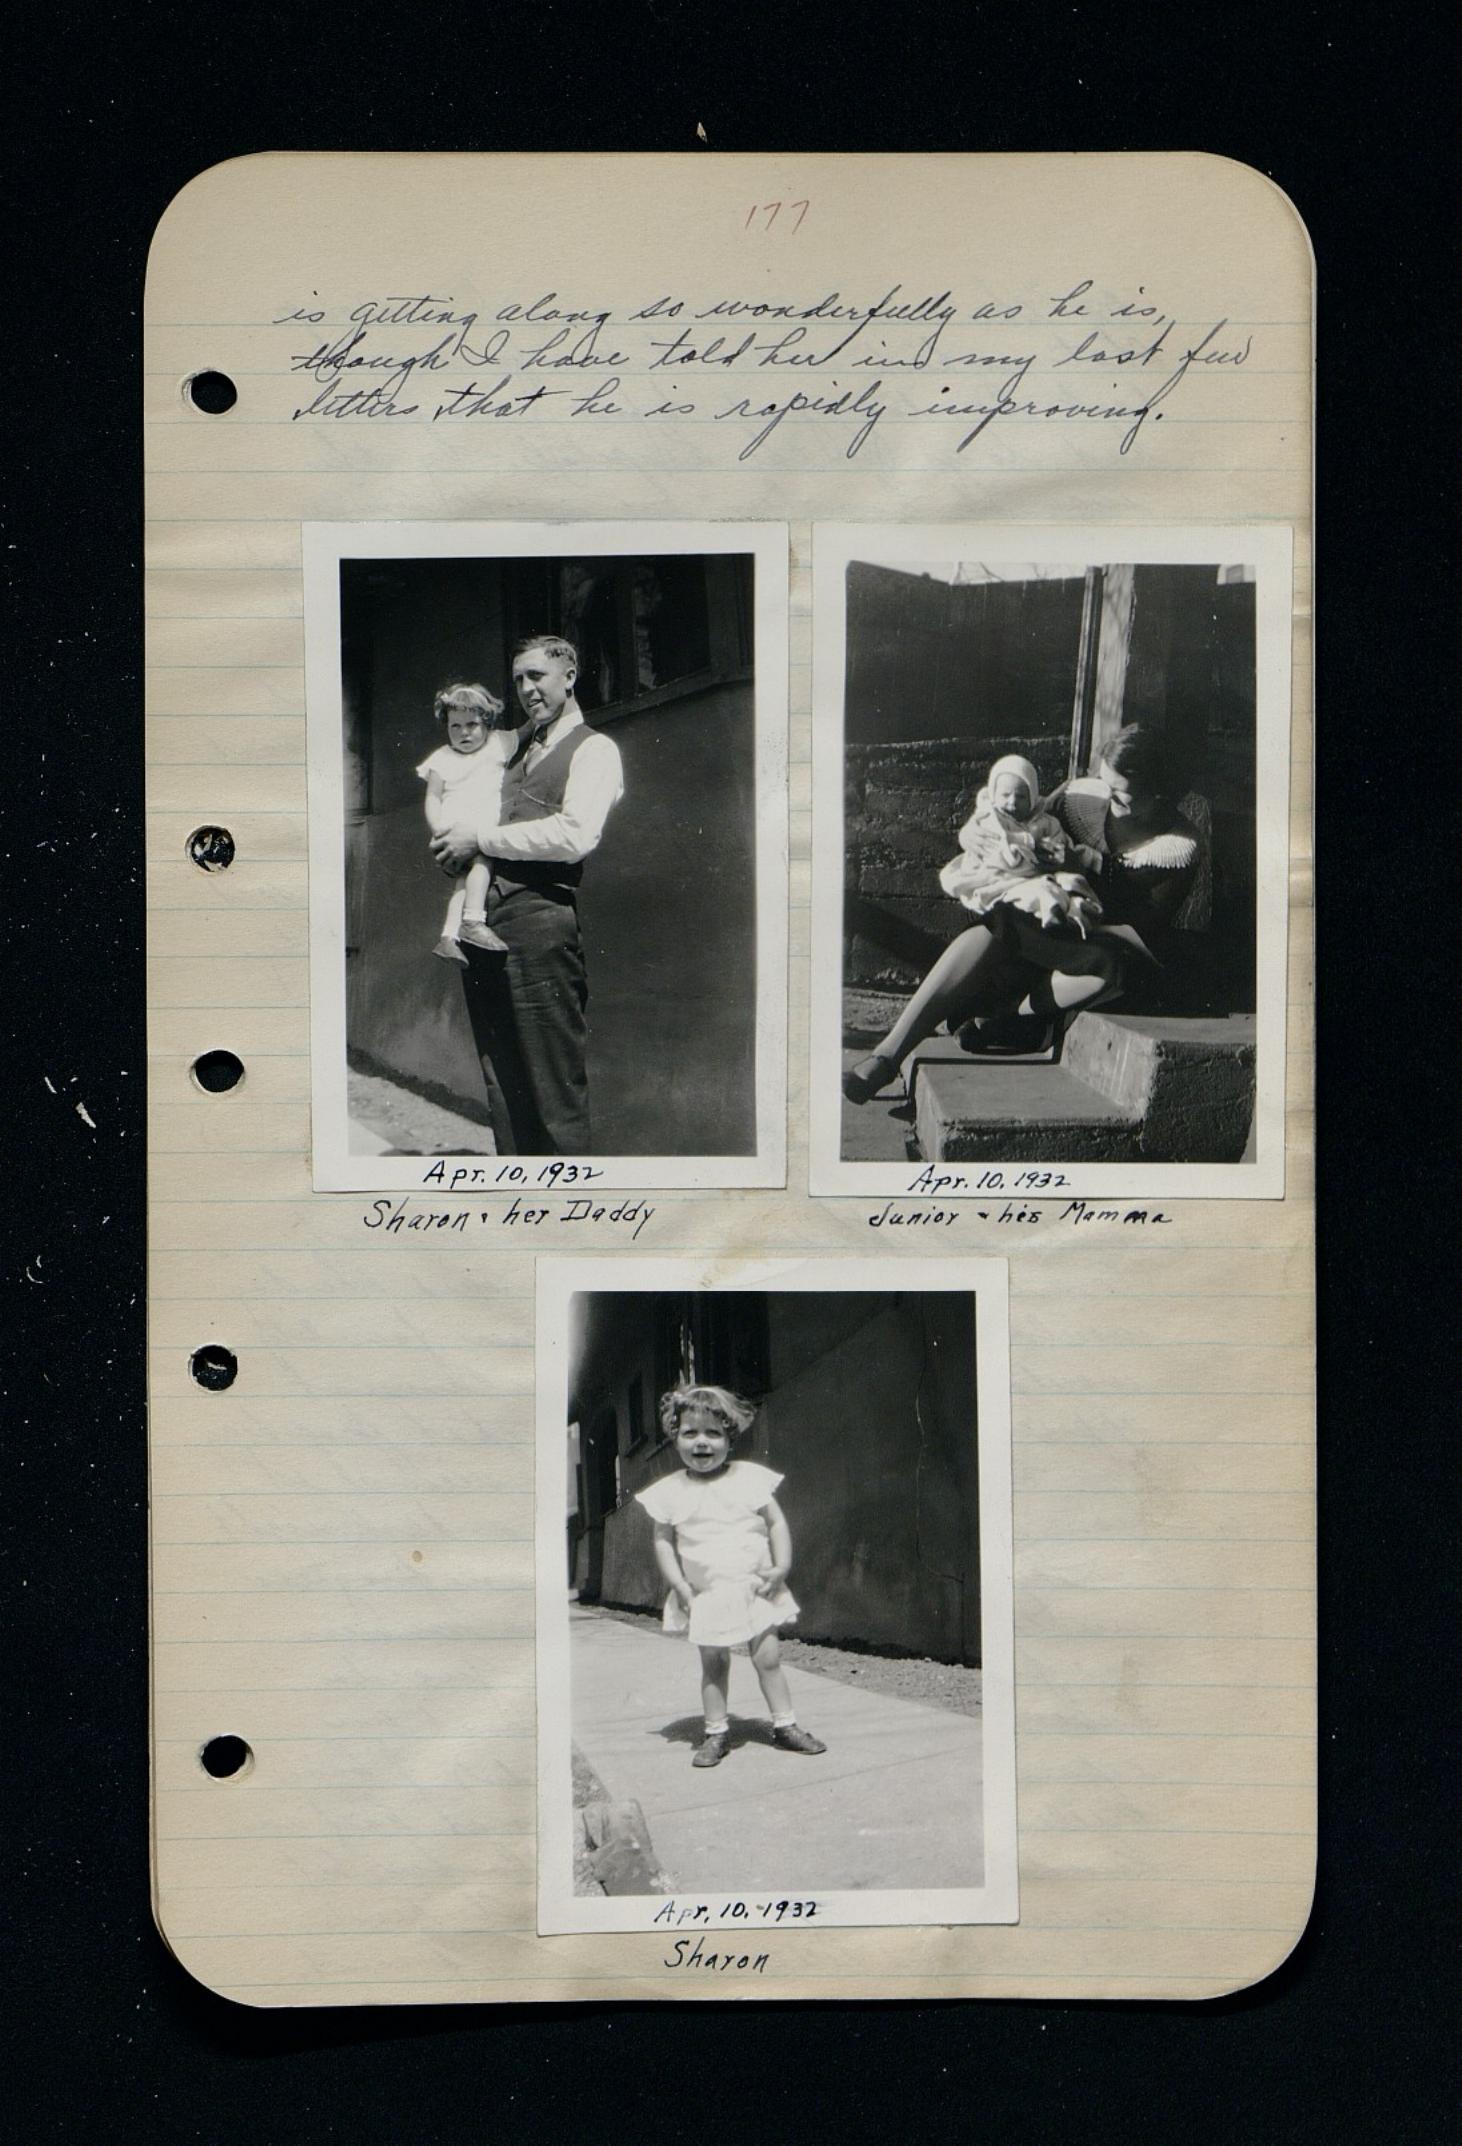 177
is getting along so wonderfully as he is,
though I have told her in my last few
letters that he is rapidly improving.
Apr. 10, 1932
Sharon & her Daddy
Apr. 10, 1932
Junior & his Mamma
Apr. 10, 1932
Sharon